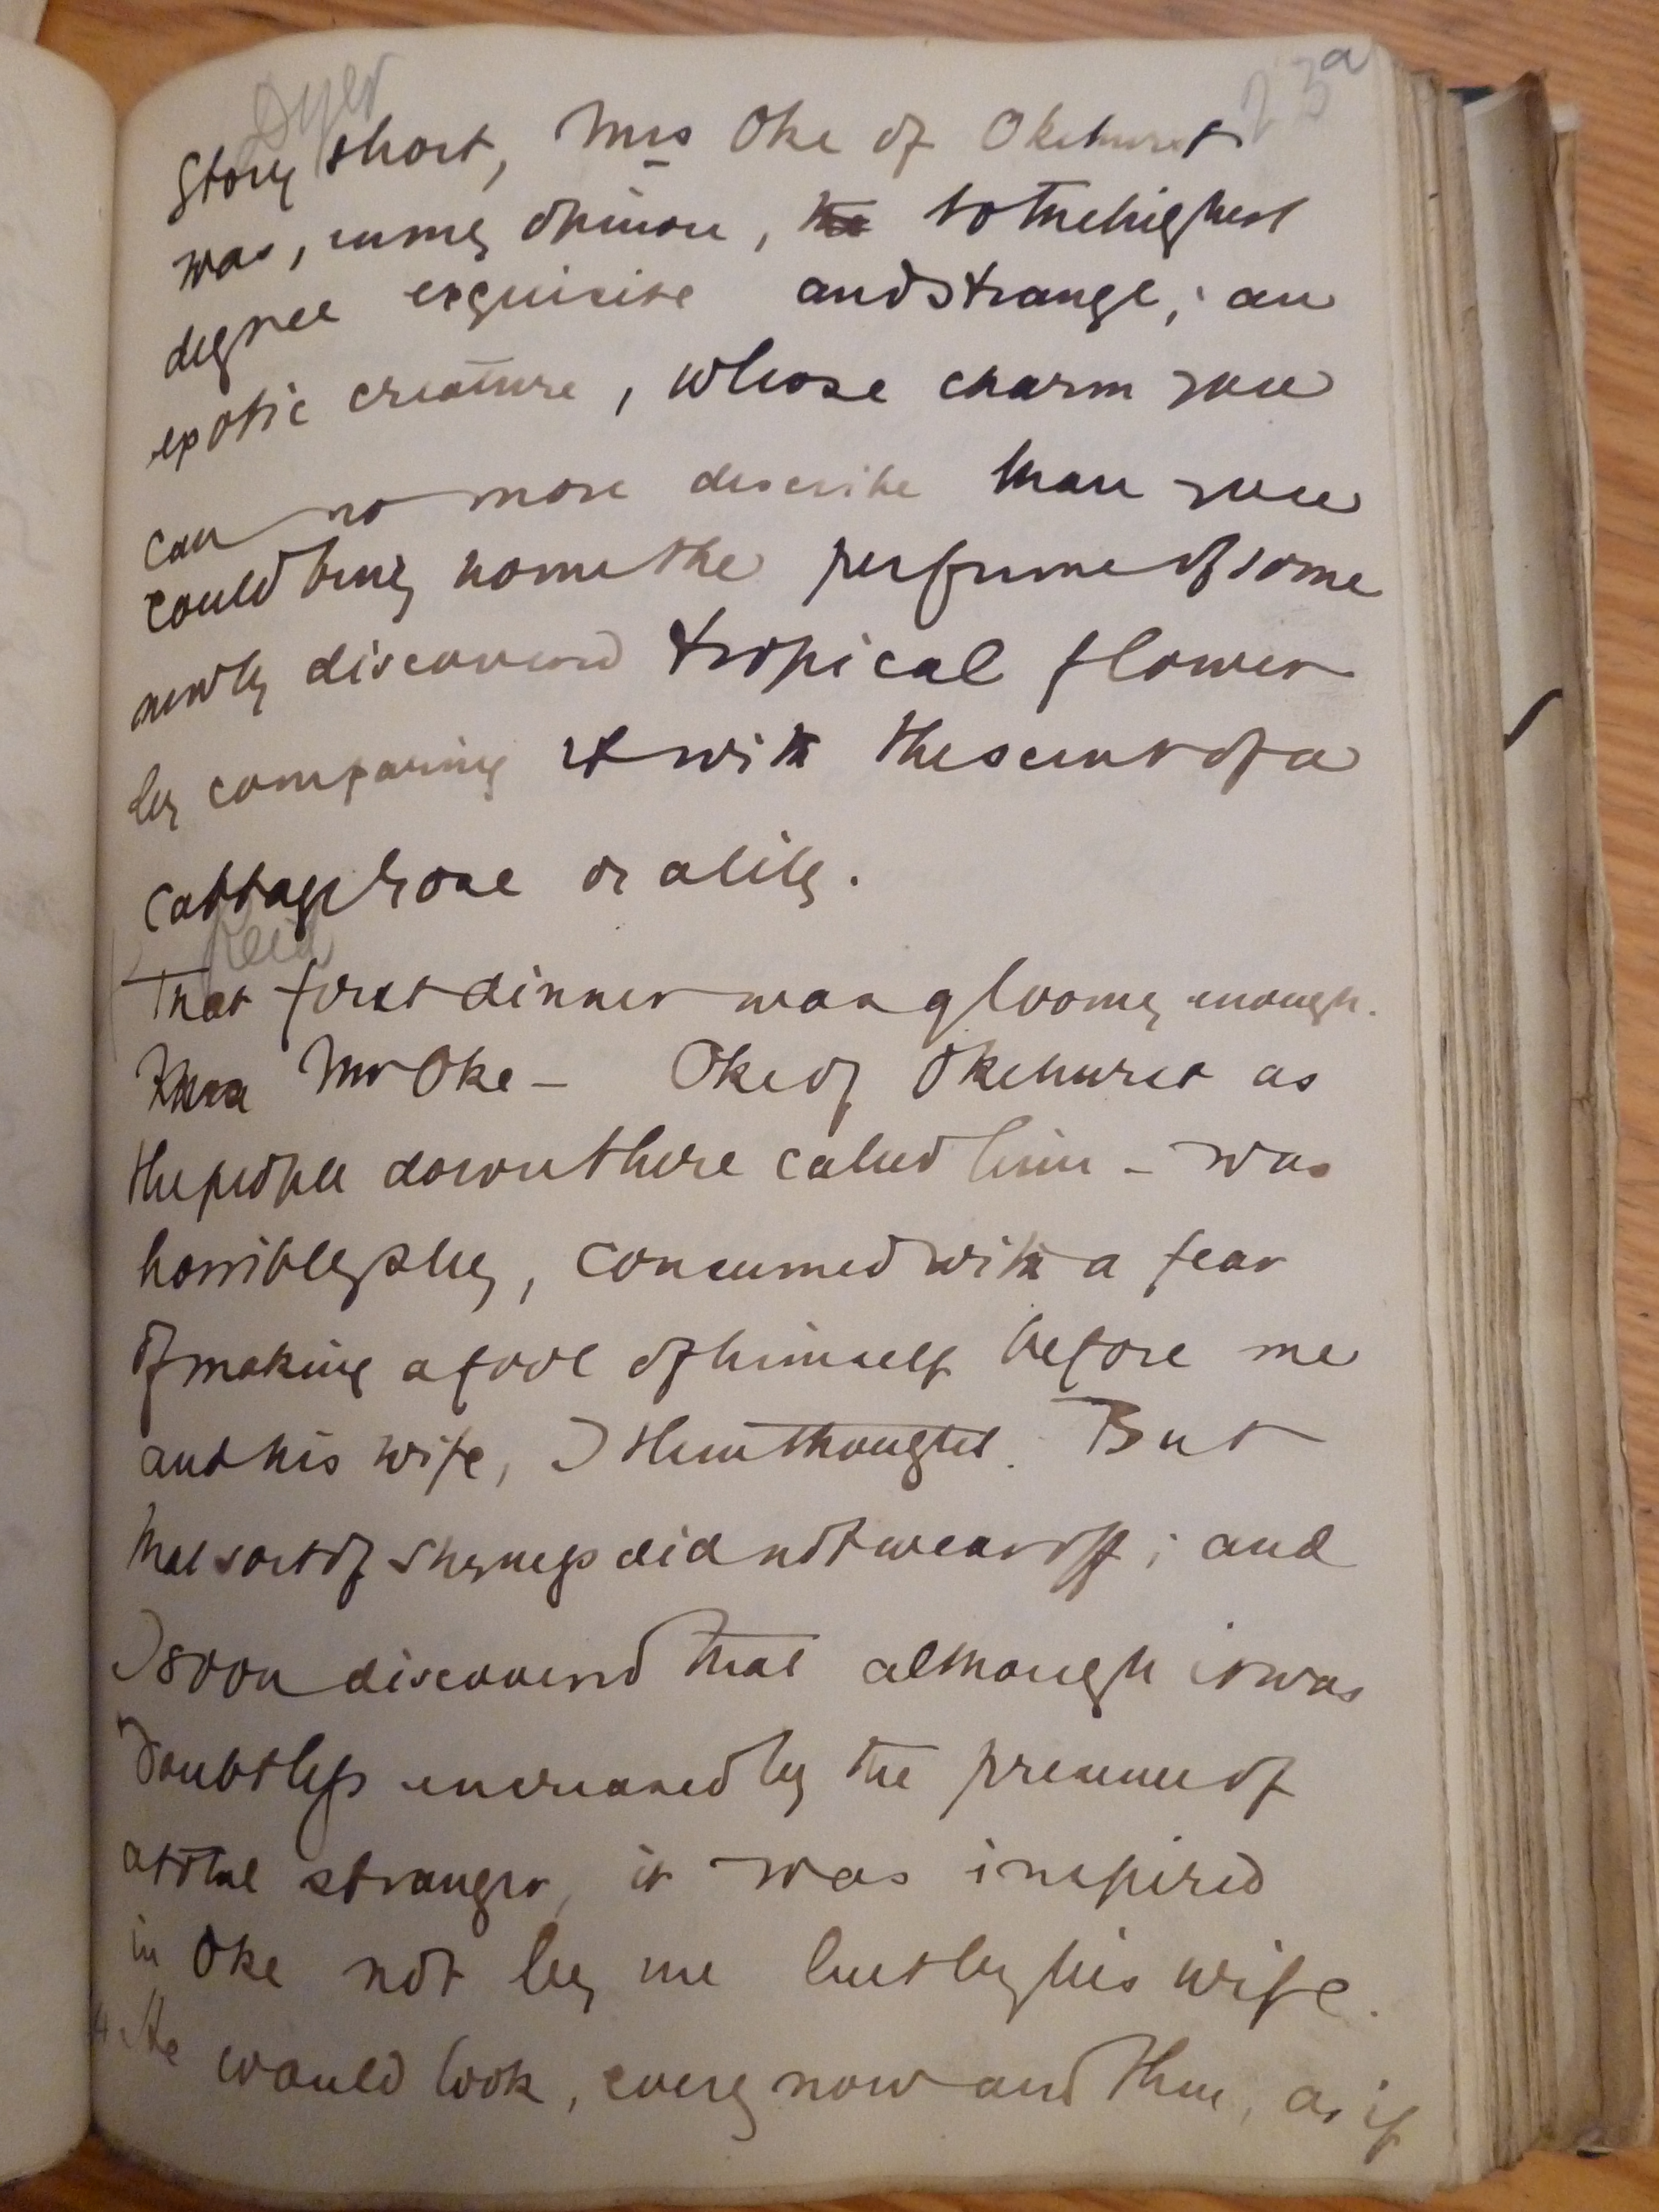 Dyer
23a
story short, Mrs Oke of Okehurst
was, in my opinion, to the highest
degree exquisite and strange; an
exotic creature, whose charm you
can no more describe than you
could bring home the perfume of some
newly discovered tropical flower
by comparing it with the scent of a
cabbage rose or a lily.
Reid
That first dinner was gloomy enough.
Mr Oke – Oke of Okehurst as
the people down there called him – was
horribly shy, consumed with a fear
of making a fool of himself before me
and his wife, I then thought. But
that sort of shyness did not wear off; and
I soon discovered that although it was
doubtless increased by the presence of
a total stranger, it was inspired
in Oke not by me but by his wife.
He would look, every now and then, as if